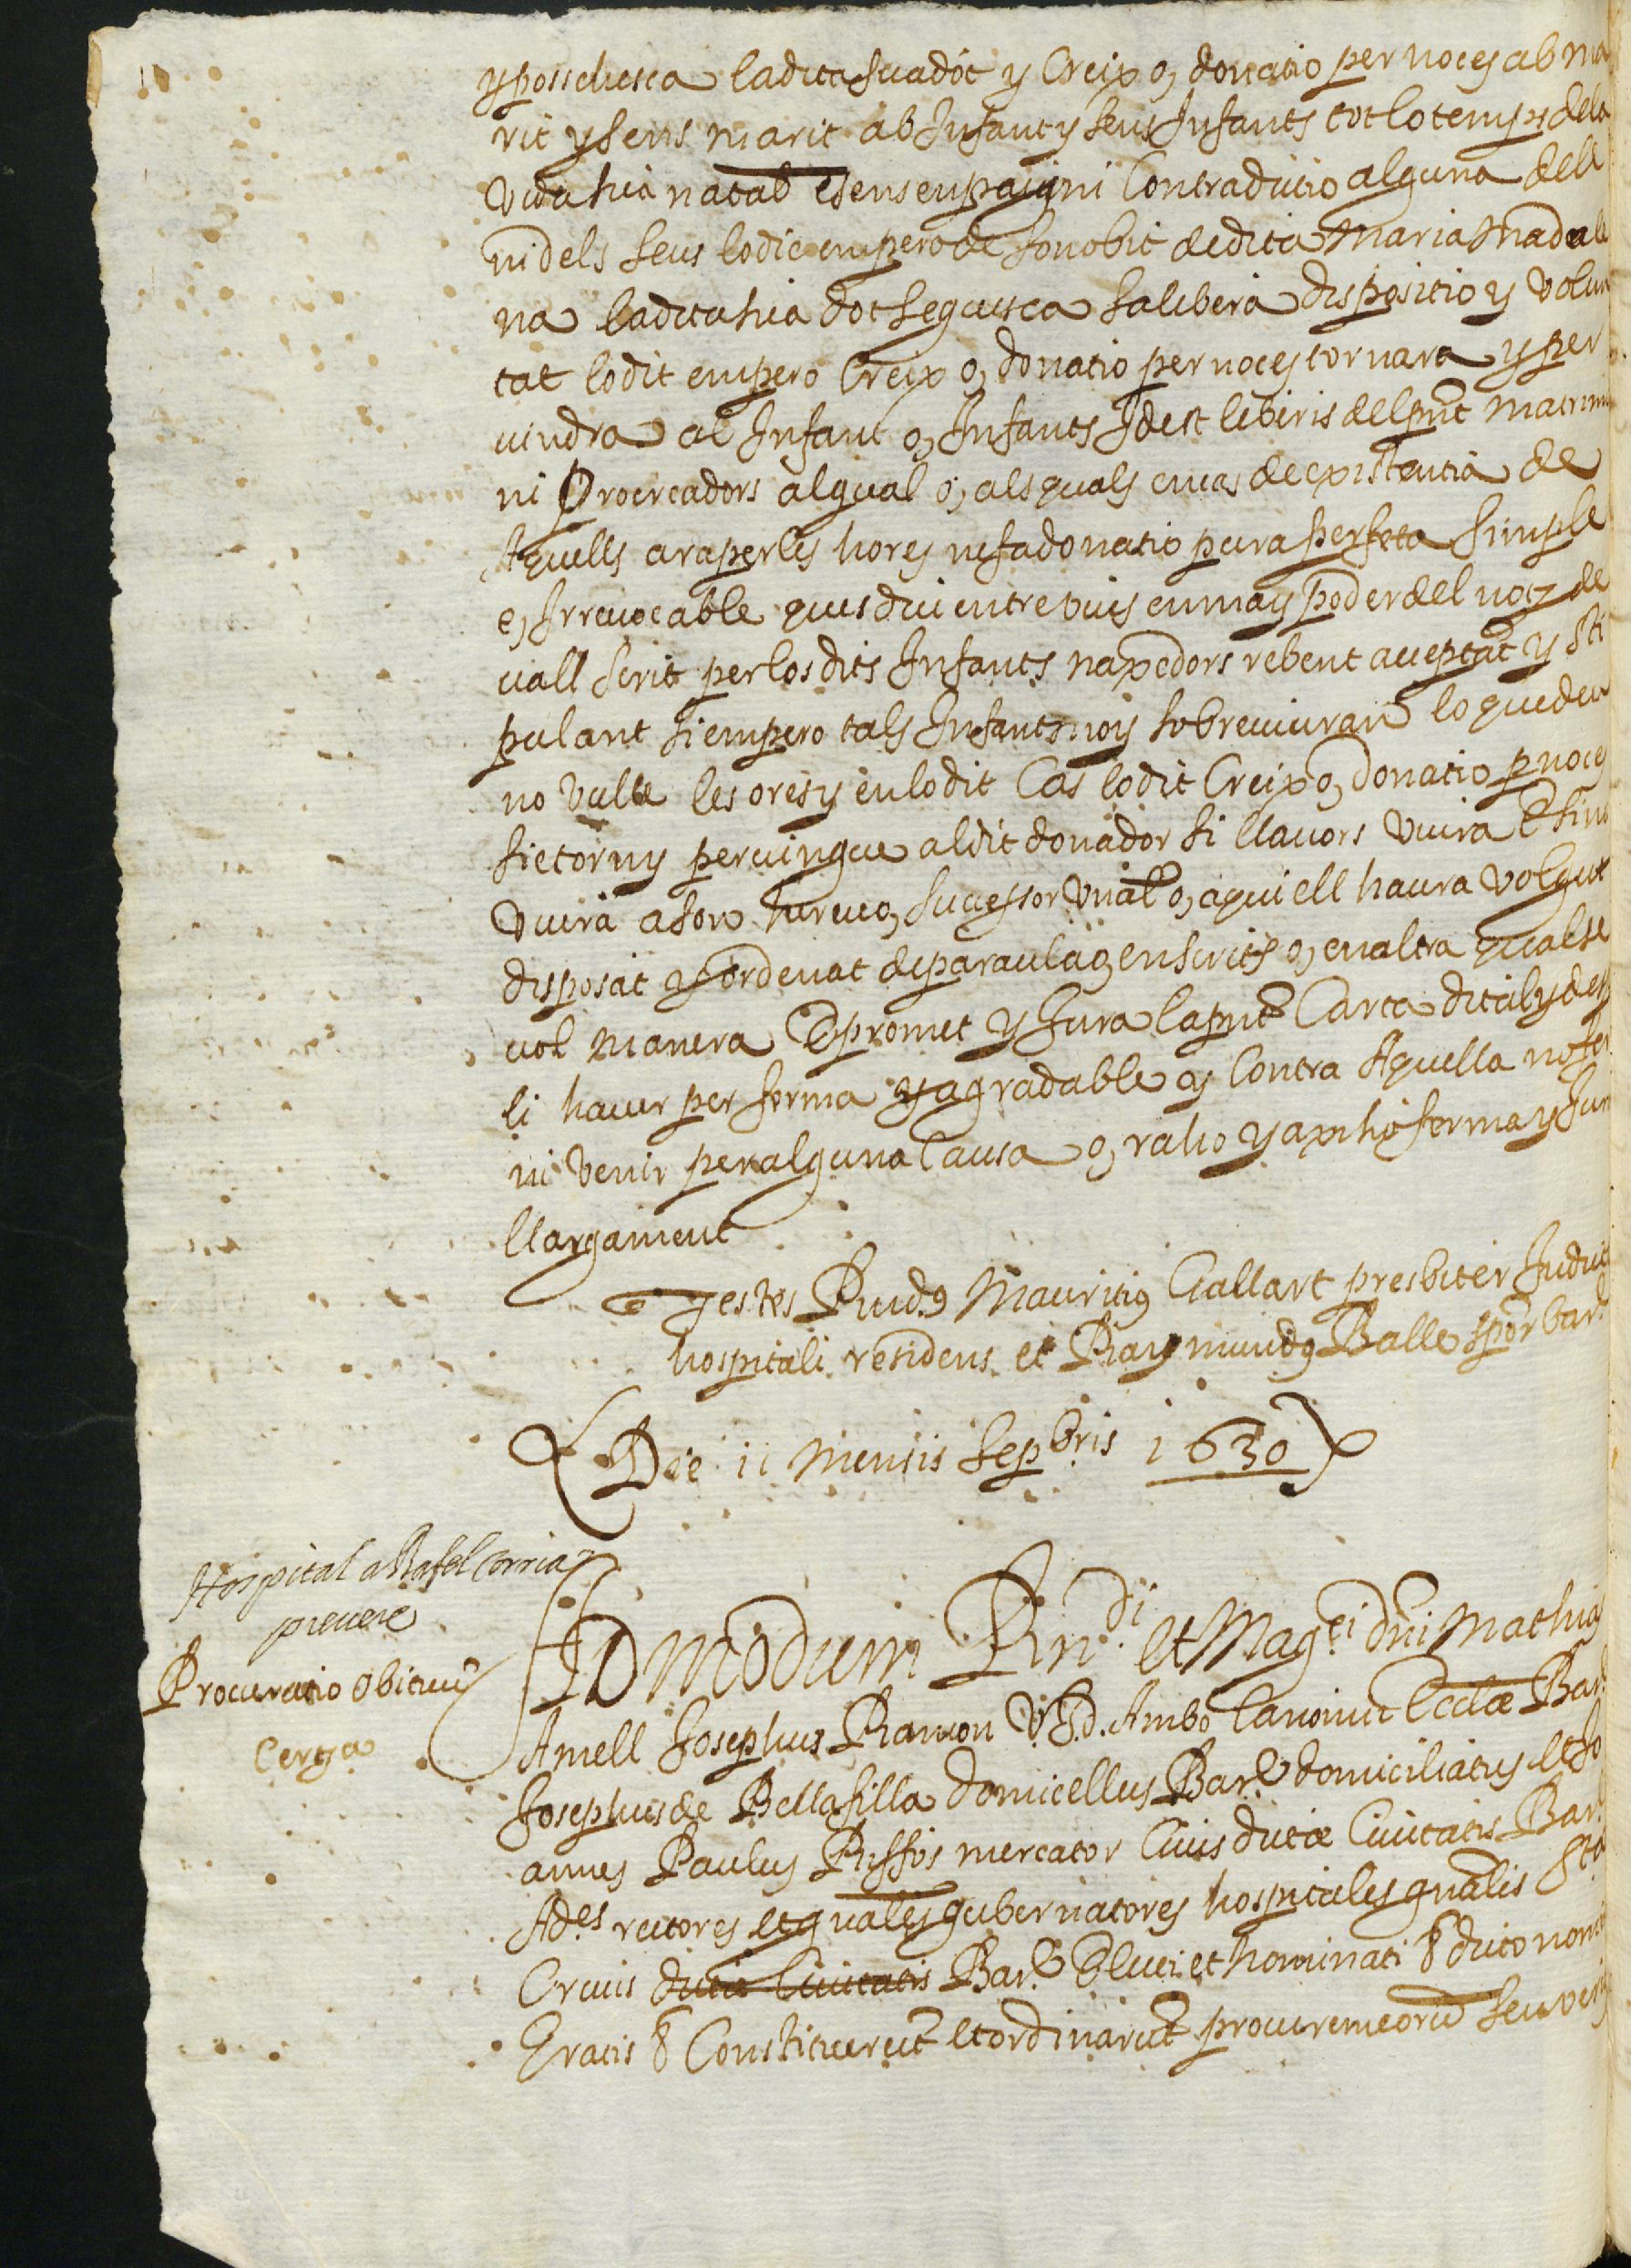 y possehesca la dita sua dot y Creix o, donatio per noces ab ma
rit y sens marit ab Infant y sens Infants tot lo temps de la
vida sua natal e sens enpaig ni Contradictio alguna dell
ni dels seus lo die empero de son obit de dita Maria Madale
na la dita sua dot seguesca sa libera dispositio y volun
tat lo dit empero Creix o, donatio per noces tornara y per
vindra al Infant o, Infants Idest liberis del pnt matrimo
ni Procreadors al qual o, als quals en cas de existentia de
Aquells ara per les hores ne fa donatio pura perfeta simple
e, Irrevocable ques diu entre vius en ma y poder del not de
vall scrit per los dits Infants naxedors rebent acceptat y sti
pulant si empero tals Infants noy sobreviuran lo que deu
no vulla les ores y en lo dit Cas lo dit Creix o, donatio p noces
sie torny pervingue al dit donador si llavors viura E sino
viura a son hereu o, successor vnal o, a qui ell haura volgut
disposat y ordenat de paraula o, en scrits o, en altra qualse
vol manera E promet y Jura la pnt Carta dotal y de es
li haver per ferma y agradable y Contra Aquella no fer
ni venir per alguna Causa o, raho y axi ho ferma y Jura
llargament
Testes Rnds Mauritius Gallart presbiter In dicto
hospitali residens et Raymundus Balle spor bar.
Die 11 mensis Sepbris 1630
Hospital a Rafel Corria
prevere
Procuratio obituū
Certa
ADmodum Rndi et Magci dni Mathias
Amell Josephus Ramon V.J.d. Ambo Canonici Ecclæ Bar.
Josephus de Bellafilla domicellus Bar. domiciliatus et Jo
annes Paulus Riffos mercator Civis dictæ Civitatis Bar.
Ades rectores et gnales gubernatores hospitales gnalis Sta
Crucis dictæ Civitatis Bar. Electi et nominati & dicto nomi
Gratis & Constituerut et ordinarut procuremeorū seu veri